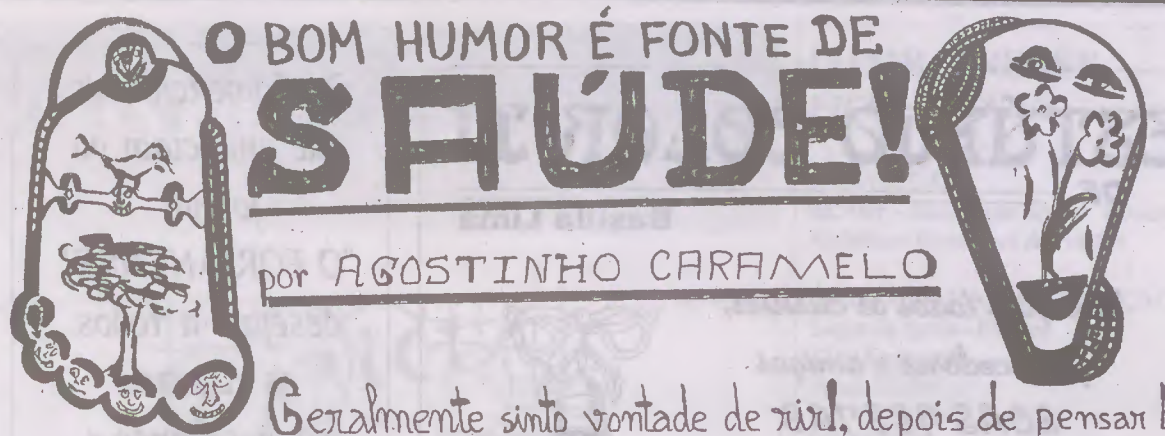 O BOM HUMOR É FONTE DE
SAÚDE!
por AGOSTINHO CARAMELO
Geralmente sinto vontade de rir!, depois de pensar!